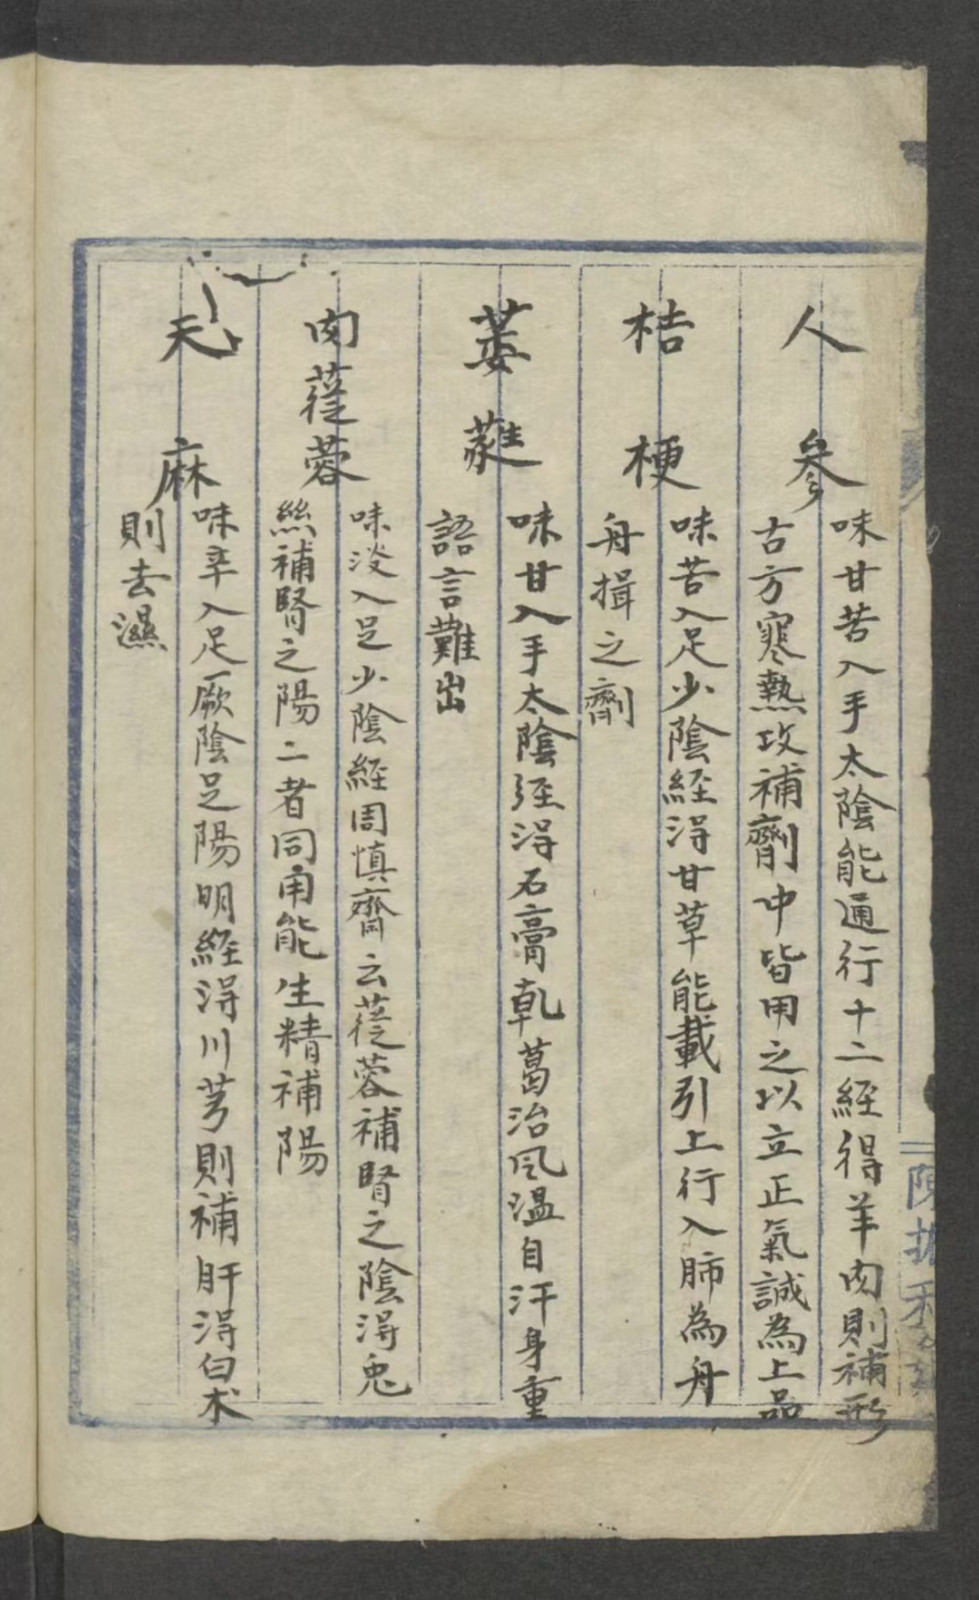 人參
味甘苦入手太陰能通行十二經得羊肉則補形
古方寒熱攻補劑中皆用之以立正氣誠為上品
桔梗
味苦入足少陰經淂甘草能載引上行入肺為舟
舟揖之劑
萎蕤
味甘入手太陰経淂石膏乾葛治风温自汗身重
語言難出
肉蓯蓉
味淡入足少陰経周慎齋云蓯蓉補腎之陰淂兎
絲補腎之陽二者同用能生精補陽
天麻
味辛入足厥陰足陽明經淂川芎則補肝淂白术
則去濕